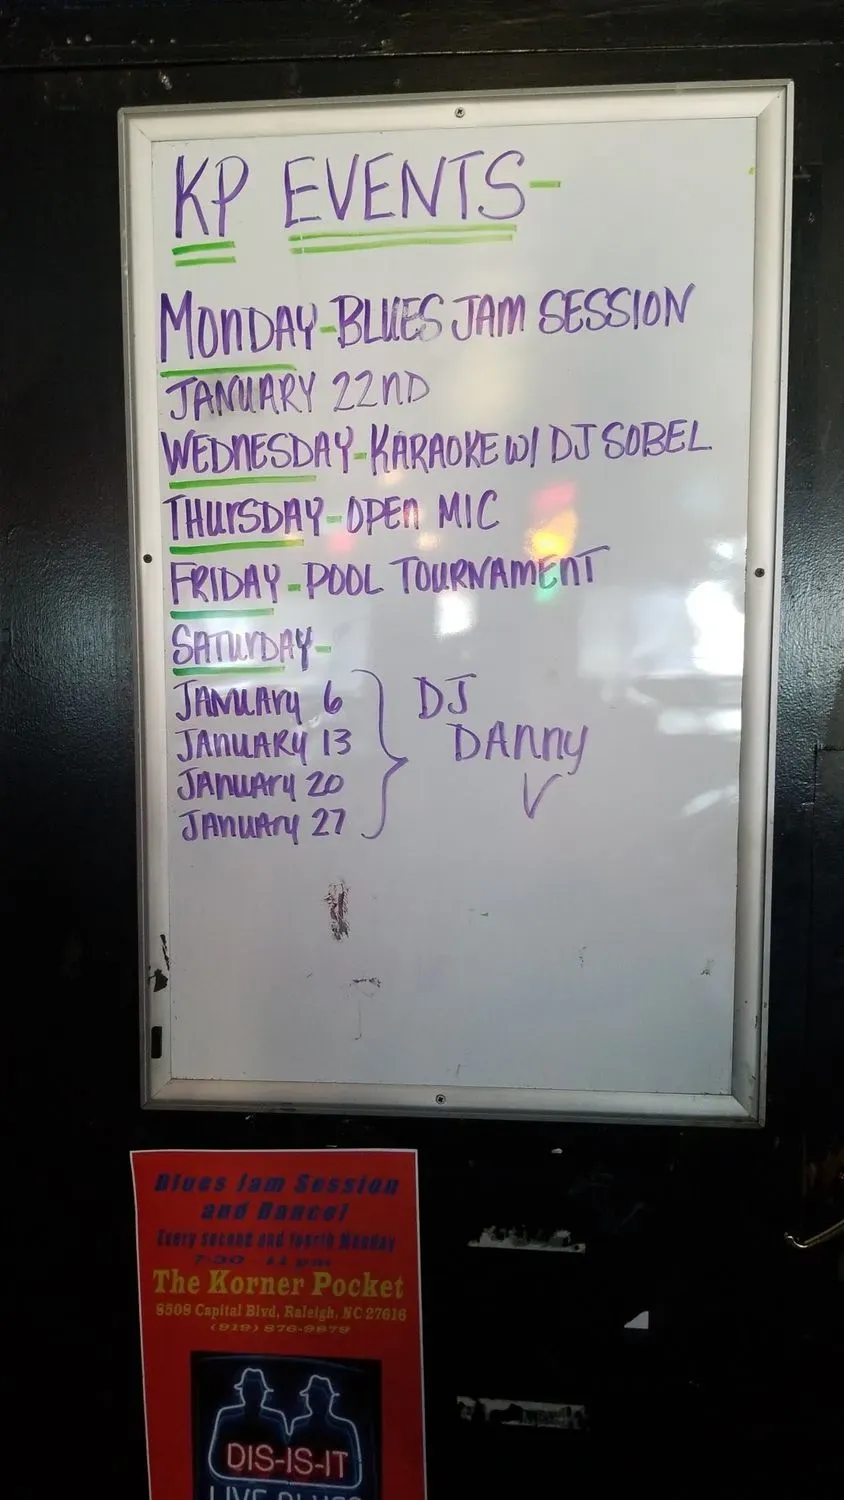 KP EVENTS-
MONDAY-BLUES JAM SESSION
JANUARY 22ND
WEDNESDAY-KARAOKE W/ DJ SOBEL
THURSDAY-OPEN MIC
FRIDAY-POOL TOURNAMENT
SATURDAY-
JANUARY 6
JANUARY 13
JANUARY 20
JANUARY 27
DJ
DANNY
Blues Jam Session
and Dance!
Every second and fourth Monday
7:30 - 11 pm
The Korner Pocket
8509 Capital Blvd, Raleigh, NC 27616
(919) 876-9879
DIS-IS-IT
LIVE BLUES